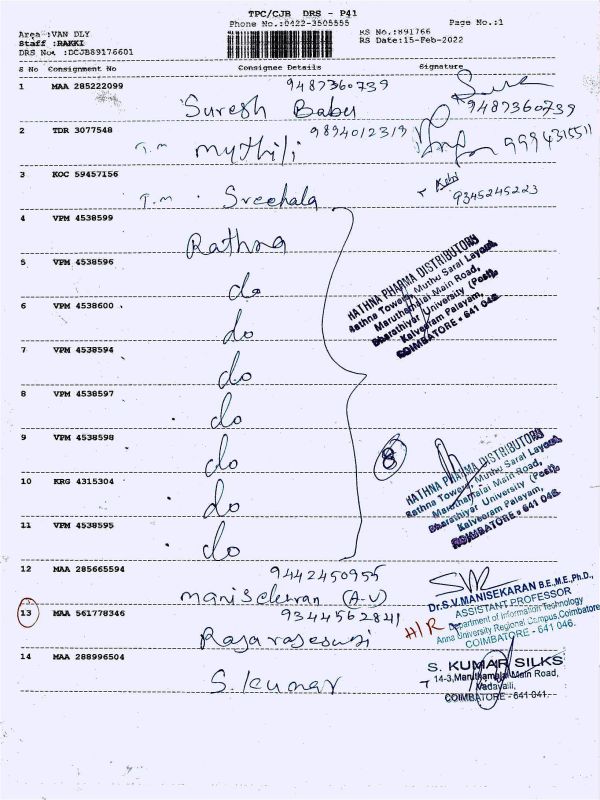 TPC/CJB DRS - P41
Phone No.:0422-3505555
Page No.:1
Area :VAN DLY
Staff :RAKKI
DRS No. :DCJB89176601
RS No.:891766
RS Date:15-Feb-2022
S No Consignment No Consignee Details Signature
1 MAA 285222099 9487360739
Suresh Babu 9487360739
2 TDR 3077548 9894012319
T.m Mythili 9994315511
3 KOC 59457156
T.m . Sreehala 9345245223
4 VPM 4538599
Rathna
RATHNA PHARMA DISTRIBUTORS
Rathna Towers, Muthu Saral Layout,
Maruthamalai Main Road,
Bharathiyar University (Post),
Kalveeram Palayam,
COIMBATORE - 641 046.
5 VPM 4538596
do
6 VPM 4538600
do
7 VPM 4538594
do
8 VPM 4538597
do
9 VPM 4538598
do
8
RATHNA PHARMA DISTRIBUTORS
Rathna Towers, Muthu Saral Layout,
Maruthamalai Main Road,
Bharathiyar University (Post),
Kalveeram Palayam,
COIMBATORE - 641 046.
10 KRG 4315304
do
11 VPM 4538595
do
12 MAA 285665594 9442450955
Manisekran (A.U)
Dr.S.V.MANISEKARAN B.E.,M.E.,Ph.D.,
ASSISTANT PROFESSOR
Department of Information Technology
Anna University Regional Campus,Coimbatore
COIMBATORE - 641 046.
13 MAA 561778346 9344562841
H/R
Rajarajeswari
14 MAA 288996504
S. Kumar
S. KUMAR SILKS
14-3,Maruthamalai Main Road,
Vadavalli,
COIMBATORE - 641 041.